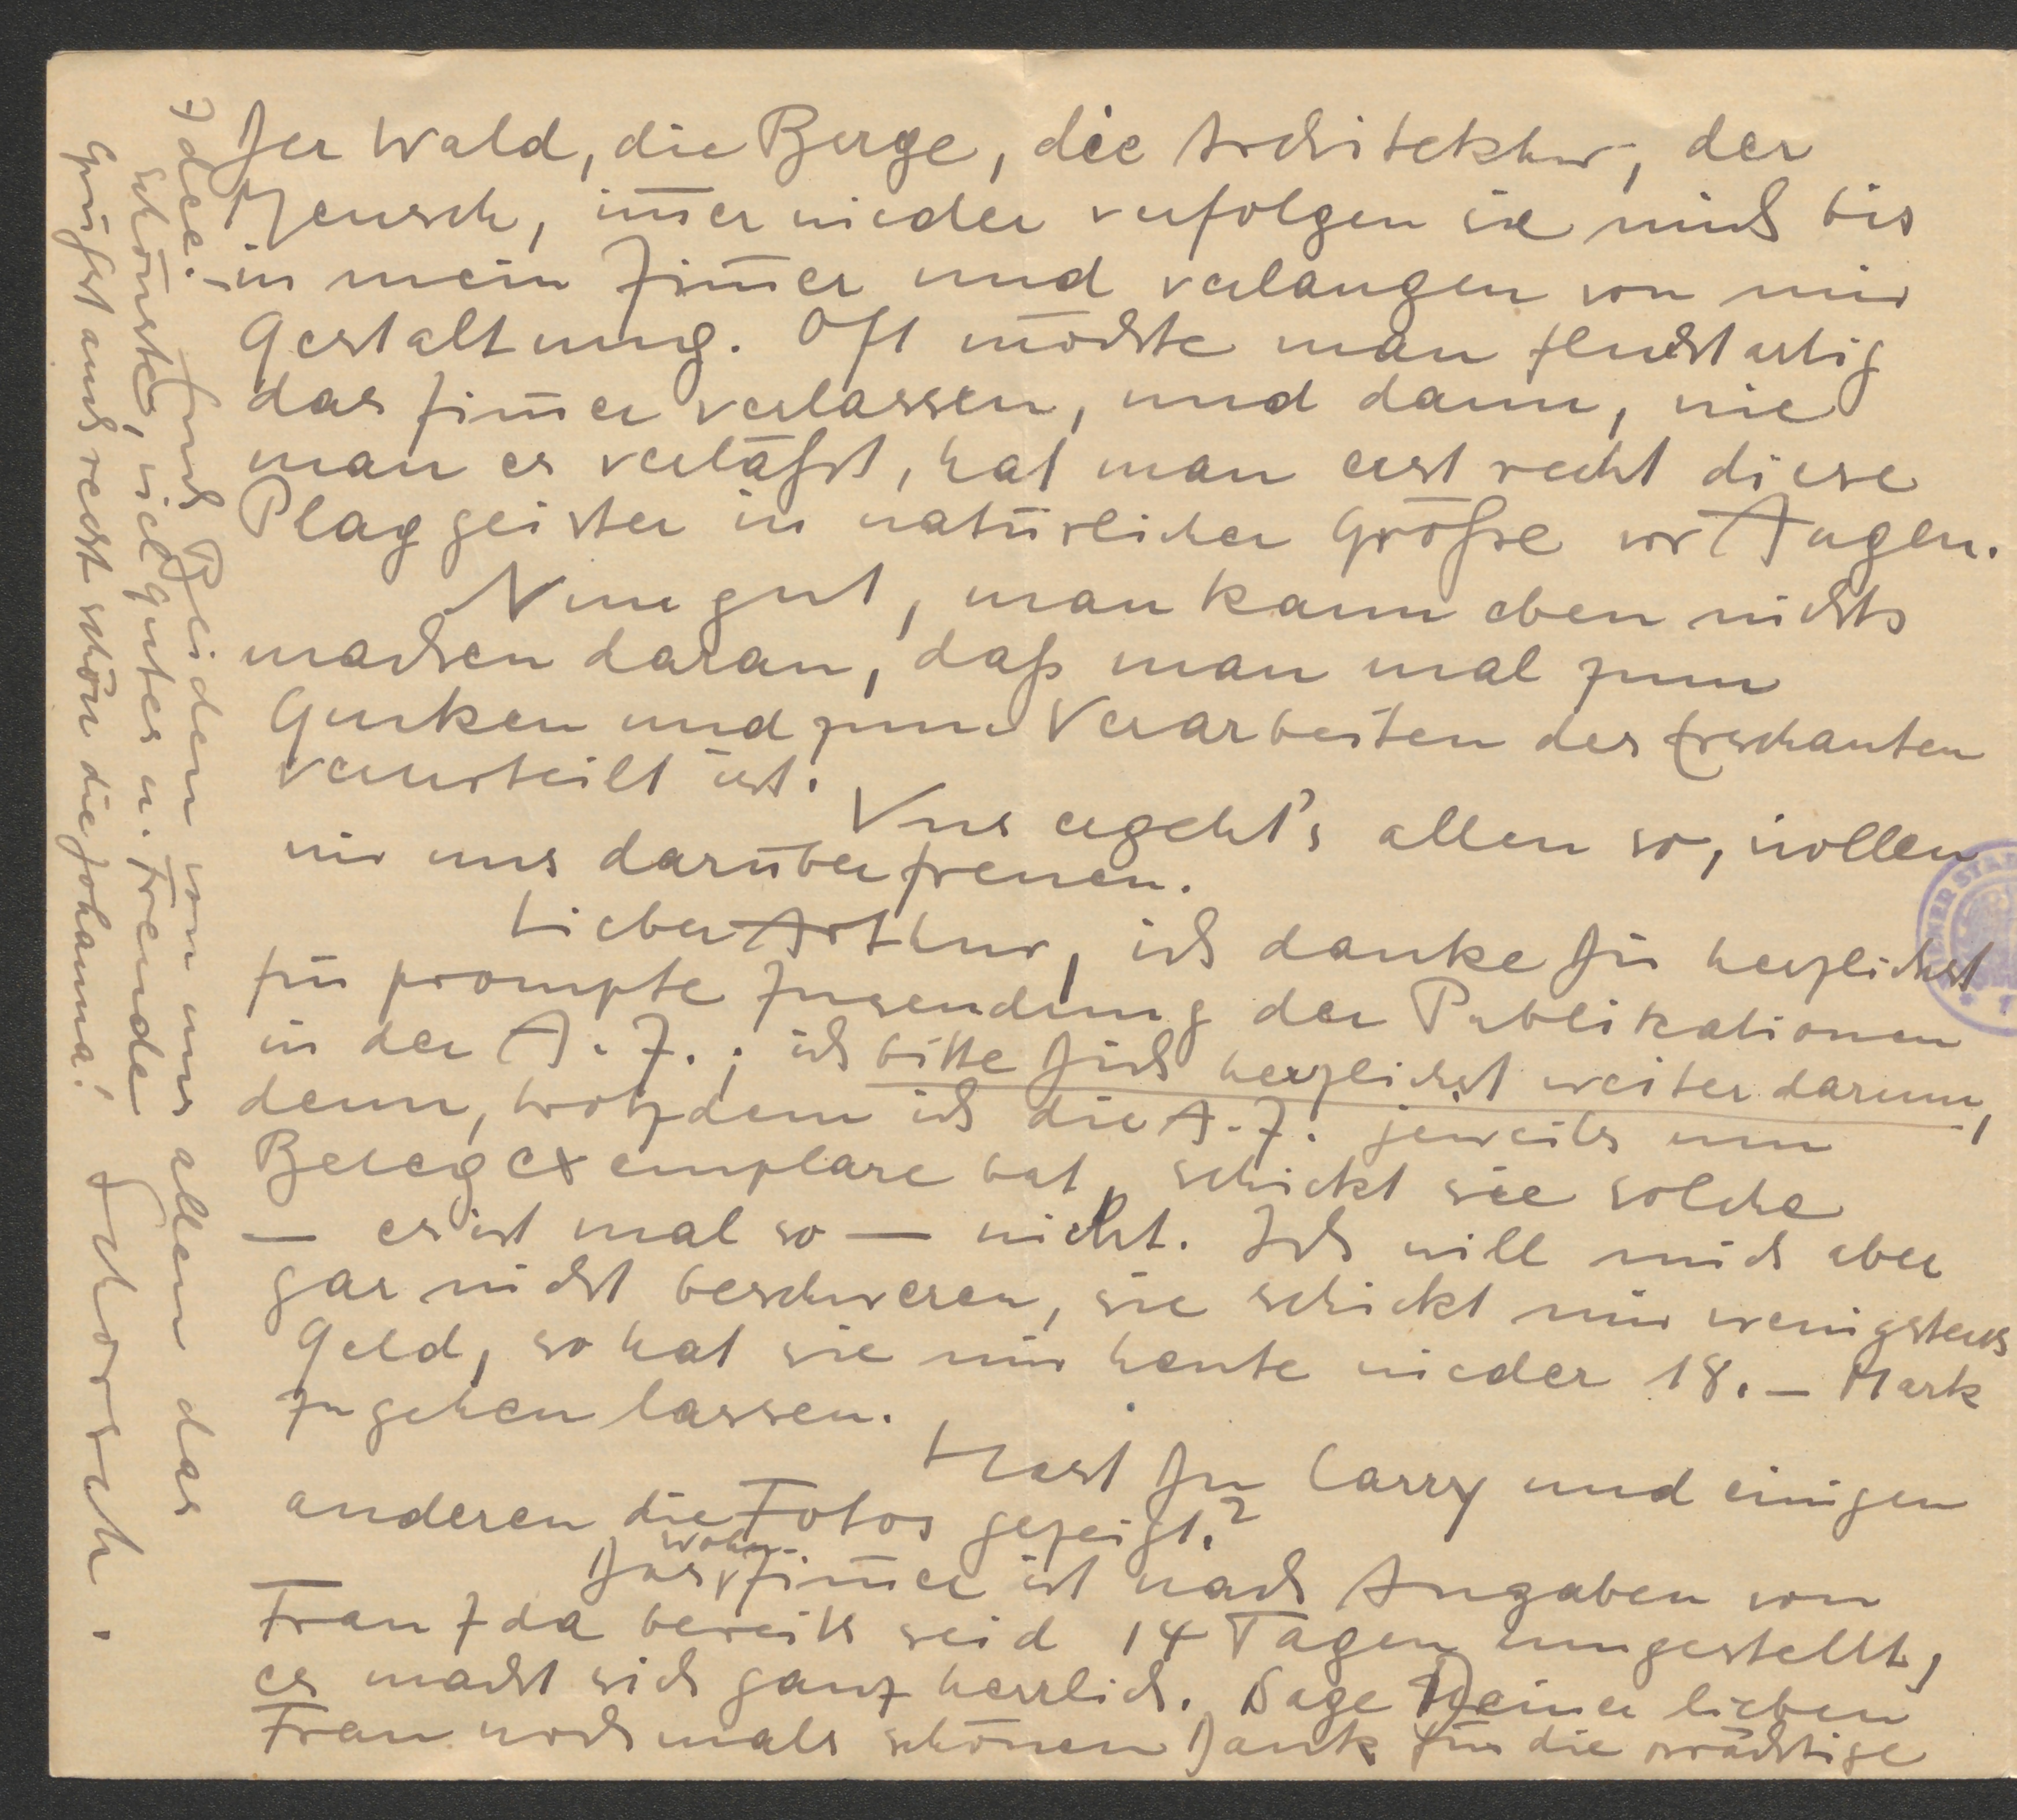 Der Wald, die Berge, die Architektur, der
Mensch, im̅er wieder verfolgen sie mich bis
in mein Zim̅er und verlangen von mir
Gestaltung. Oft möchte man fluchtartig
das Zim̅er verlassen, und dann, wie
man es verläßt, hat man erst recht diese
Plaggeister in natürlicher Größe vor Augen.
Nun gut, man kann eben nichts
machen daran, daß man mal zum
Gucken und zum Verarbeiten des Erschauten
verurteilt ist.
Uns ergeht's allen so, wollen
wir uns darüber freuen.
Lieber Arthur, ich danke Dir herzlichst
für prompte Zusendung der Publikationen
in der A. Z.; ich bitte Dich herzlichst weiter darum,
denn, trotzdem ich die A. Z. jeweils um
Belegexemplare bat, schickt sie solche
— es ist mal so — nicht. Ich will mich aber
gar nicht beschweren, sie schickt mir wenigstens
Geld, so hat sie mir heute wieder 18.— Mark
zugehen lassen.
Hast Du Carry und einigen
anderen die Fotos gezeigt?
Das Wohnzim̅er ist nach Angaben von
Frau Ida bereits seid 14 Tagen umgestellt,
es macht sich ganz herrlich. Sage Deiner lieben
Frau nochmals schönen Dank für die prächtige
Idee! – Euch Beiden von uns allen das
schönste, viel gutes u. Freude
Grüßt auch recht schön die Johanna! Schorsch.